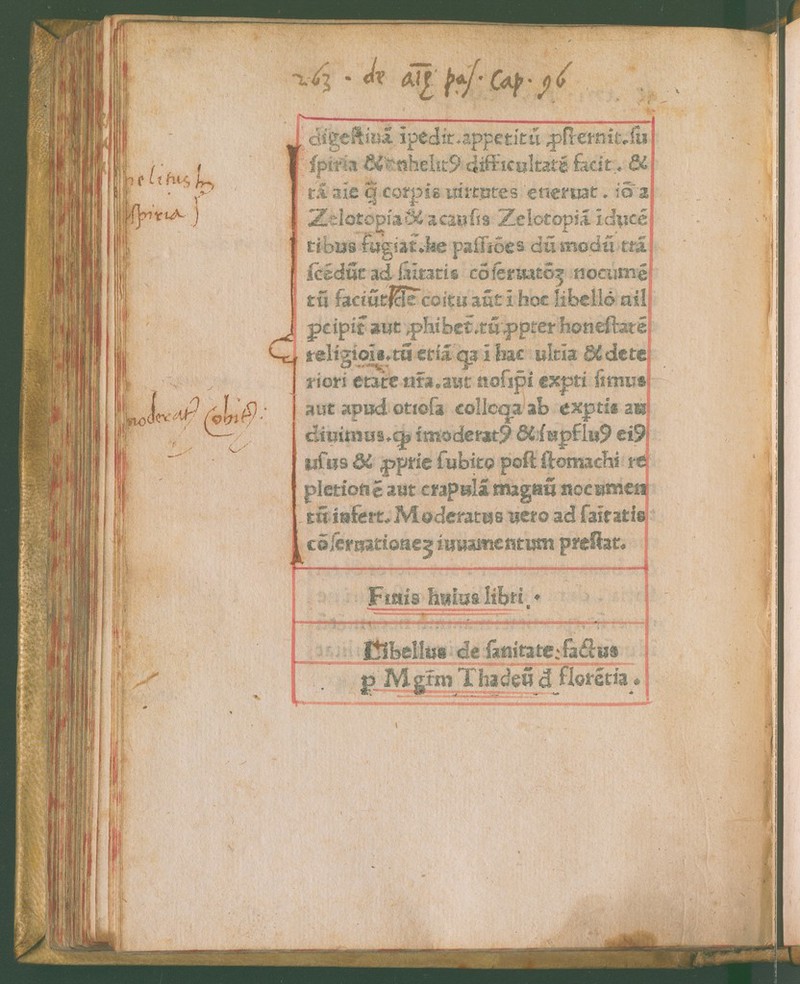 263 - de aīe pas. Cap. 96
digestiuā īpedit. appetitū ꝓsternit. su
spiria & anhelitꝰ difficultatē facit. &
tā aīe q̄ corpis uirtutes eneruat. iō a
Zelotopia & a causis Zelotopiā īducē
tibus fugiat. he passiōes dū modū trā
scēdūt ad sāitatis cōseruatōꝫ nocumē
tū faciūt de coitu aūt ī hoc libello nil
p̱cipit̄ aut ꝓhibet̄. tū ꝓpter honestatē
religiois. tū etiā qa ī hac ultīa & dete
riori etate nr̄a. aut
aut apud otiosa colloqa ab exptis au
diuimus. ꝙ īmoderatꝰ & supfluꝰ eiꝰ
usus & ꝓprie subito post stomachi re
pletionē aut crapulā magnū nocumen
tū infert. Moderatus uero ad sāitatis
cōseruationeꝫ iuuamentum prestat.
Finis huius libri.
Libellus de sanitate: factus
p̱ Mgr̄m Thadeū d̄ florētia.
helitus
spiria
moderatꝰ coitꝰ: